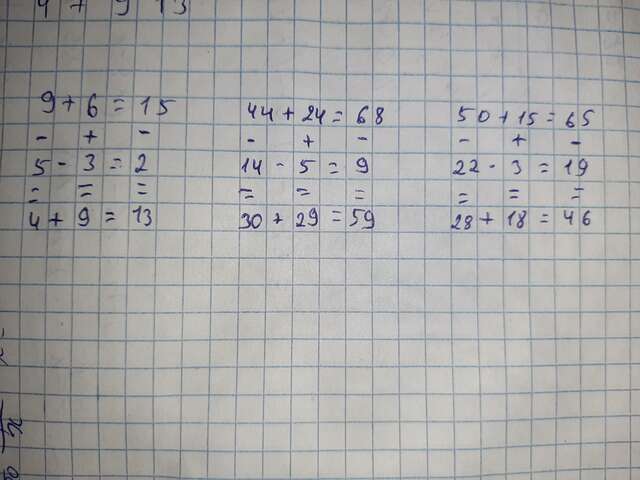 4 + 9 13
9 + 6 = 15
- + -
5 - 3 = 2
= = =
4 + 9 = 13
44 + 24 = 68
- + -
14 - 5 = 9
= = =
30 + 29 = 59
50 + 15 = 65
- + -
22 - 3 = 19
= = =
28 + 18 = 46